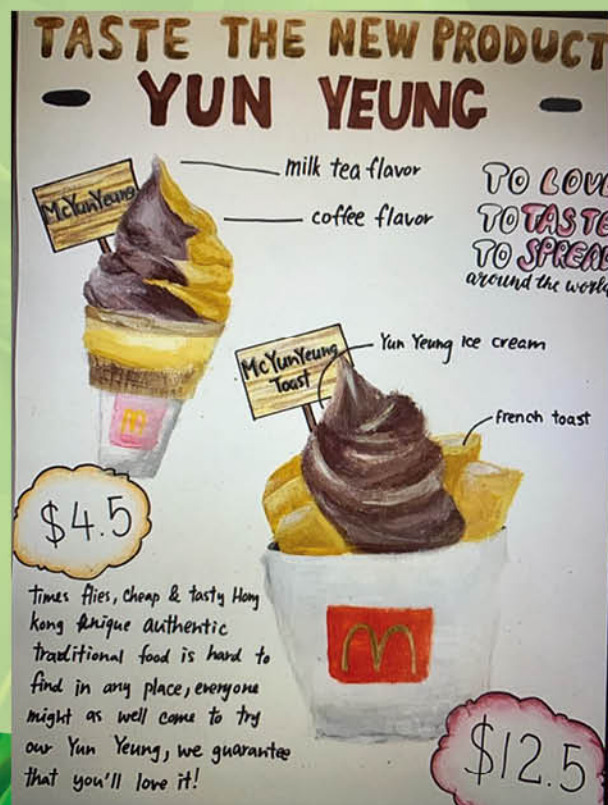 TASTE THE NEW PRODUCT
- YUN YEUNG -
milk tea flavor
McYunYeung
coffee flavor
TO LOVE
TO TASTE
TO SPREAD
around the world
Yun Yeung Ice cream
McYunYeung
Toast
french toast
$4.5
times flies, cheap & tasty Hong
kong unique authentic
traditional food is hard to
find in any place, everyone
might as well come to try
our Yun Yeung, we guarantee
that you'll love it!
$12.5